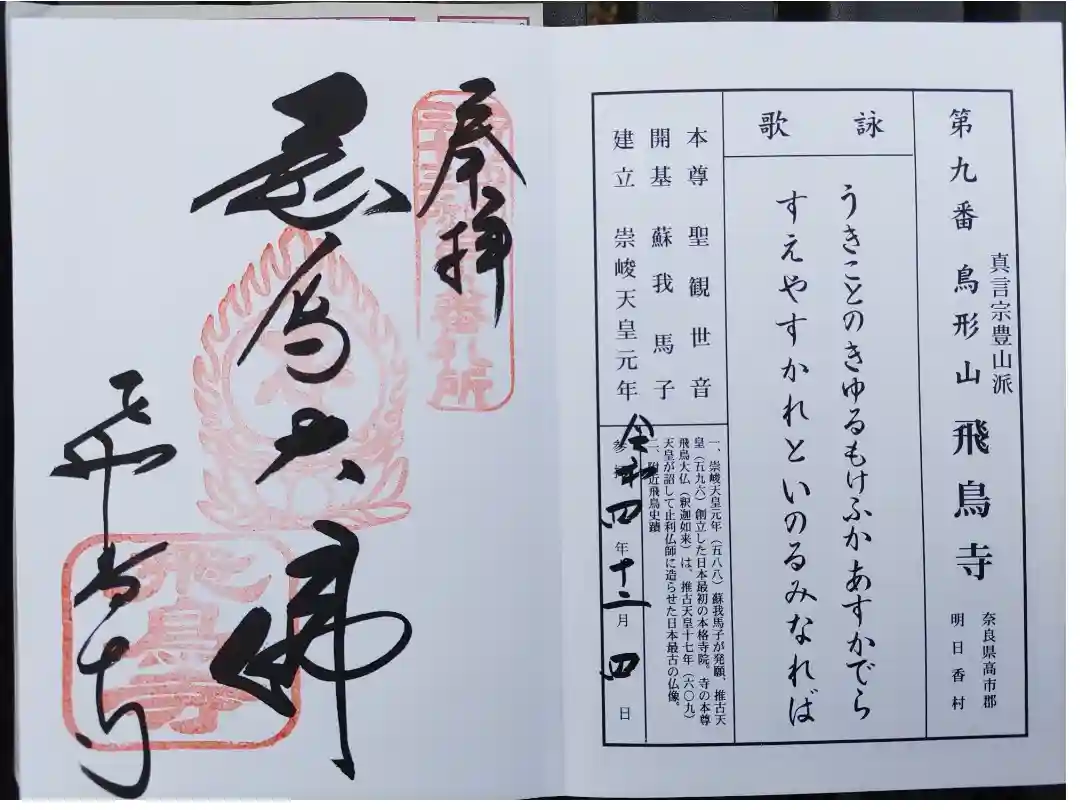 真言宗豊山派
第九番 鳥形山 飛鳥寺
奈良県高市郡
明日香村
詠歌
うきことのきゆるもけふかあすかでら
すえやすかれといのるみなれば
本尊 聖観世音
開基 蘇我馬子
建立 崇峻天皇元年
一、崇峻天皇元年（五八八）蘇我馬子が発願、推古天
皇（五九六）創立した日本最初の本格寺院。寺の本尊
飛鳥大仏（釈迦如来）は、推古天皇十七年（六〇九）
天皇が詔して止利仏師に造らせた日本最古の仏像。
二、附近飛鳥史蹟
令和四年十二月四日
奉拝
飛鳥大佛
飛鳥寺
飛鳥寺